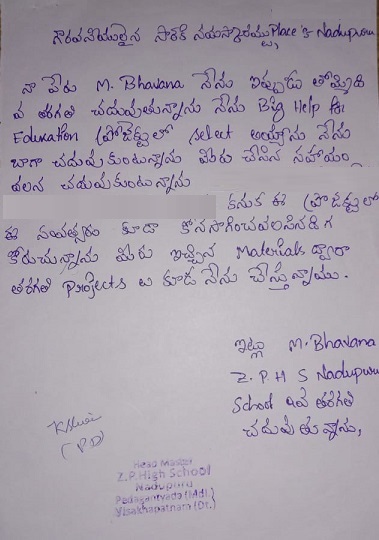 గౌరవనియులైన సార్‌కి నమస్కారములు Place :- Nadupuru
నా పేరు M. Bhavana నేను ఇప్పుడు తొమ్మిది
వ తరగతి చదువుతున్నాను నేను Big Help for
Education ప్రోజెక్టులో select అయ్యాను నేను
బాగా చదువుకుంటున్నాను మీరు చేసిన సహాయం
వలన చదువుకుంటున్నాను
కనుక ఈ ప్రోజెక్టులో
ఈ సంవత్సరం కూడా కొనసాగించవలసినదిగ
కోరుచున్నాను మీరు ఇచ్చిన Materials ద్వారా
తరగతి Projects లు కూడ నేను చేస్తున్నాము.
ఇట్లు M. Bhavana
Z. P. H S Nadupuru
School 9వ తరగతి
చదువుతున్నాను,
(P.D)
Head Master
Z.P.High School
Nadupuru
Pedagantyada (Mdl.)
Visakhapatnam (Dt.)